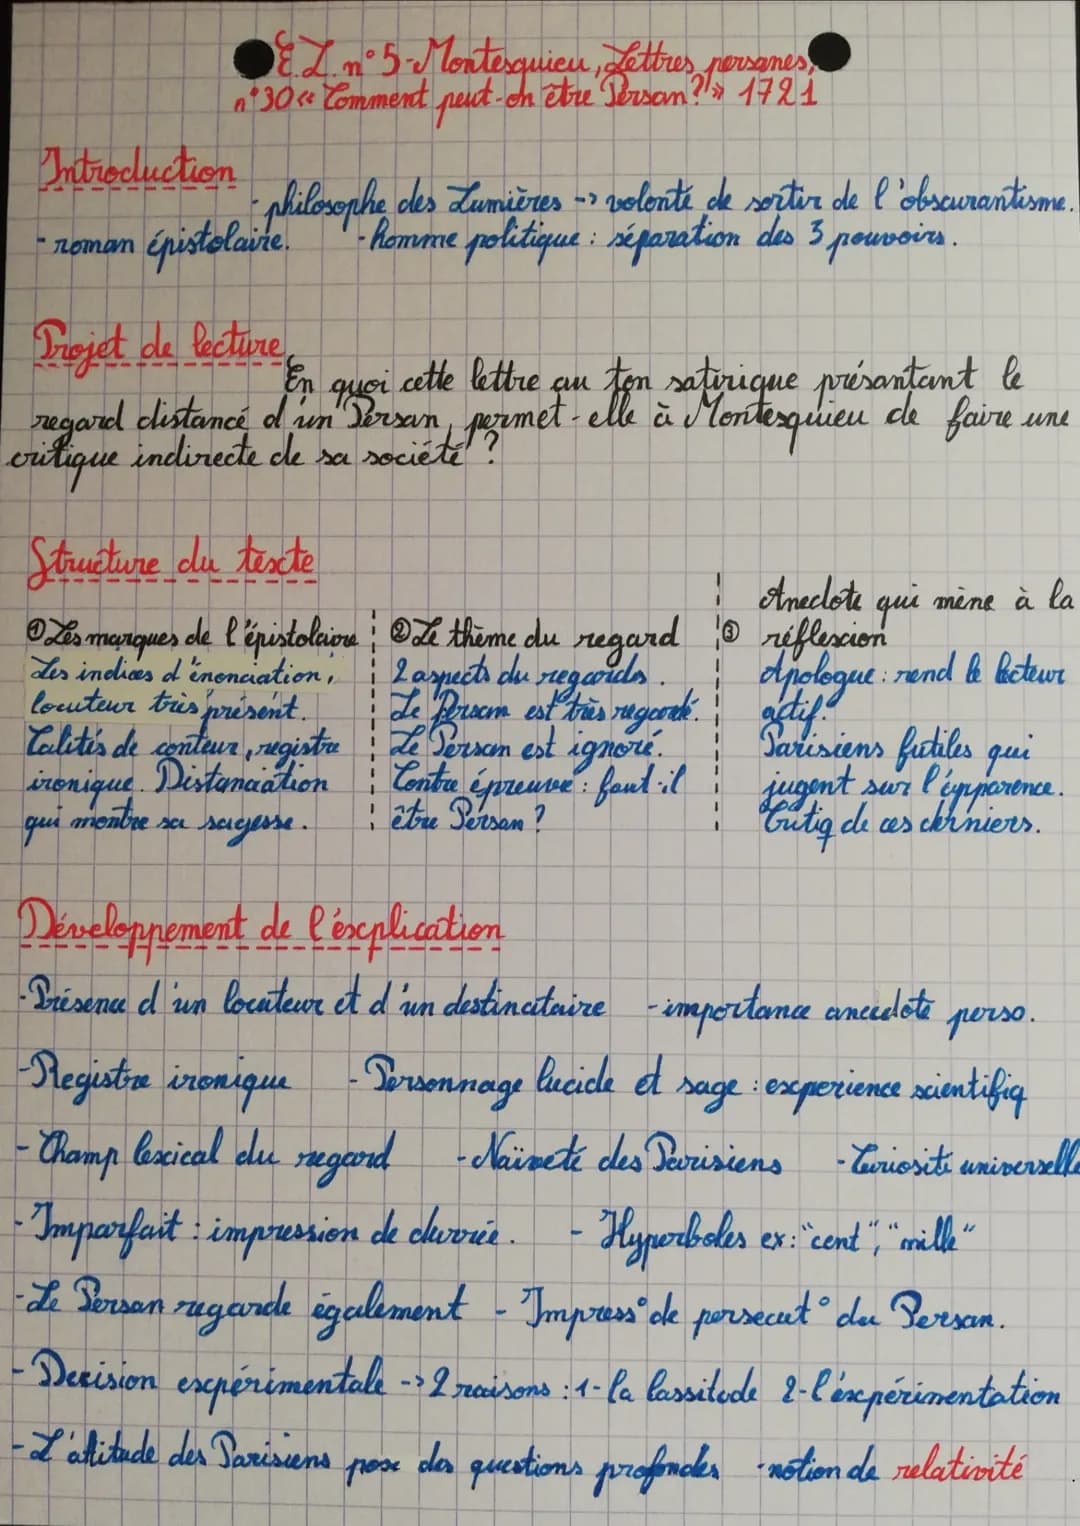 E.L. n°5-Montesquieu, Lettres persanes,
n°30 « Comment peut-on être Persan? » 1721
Introduction
- philosophe des Lumières -> volonté de sortir de l'obscurantisme.
- roman épistolaire. - homme politique : séparation des 3 pouvoirs.
Projet de lecture
En quoi cette lettre au ton satirique présantant le
regard distancé d'un Persan, permet-elle à Montesquieu de faire une
critique indirecte de sa société ?
Structure du texte
① Les marques de l'épistolaire
Les indices d'énonciation,
locuteur très présent.
Calités de conteur, registre
ironique. Distanciation
qui montre sa sagesse.
② Le thème du regard
2 aspects du regards.
Le Persan est très regardé.
Le Persan est ignoré.
Contre épreuve : faut-il
être Persan ?
Anecdote qui mène à la
③ réflexion
Apologue : rend le lecteur
actif.
Parisiens futiles qui
jugent sur l'apparence.
Critiq de ces derniers.
Développement de l'explication
- Présence d'un locuteur et d'un destinataire - importance anecdote perso.
- Registre ironique - Personnage lucide et sage : experience scientifiq
- Champ lexical du regard - Naïveté des Parisiens - Curiosité universelle
- Imparfait : impression de durrée. - Hyperboles ex: "cent", "mille"
- Le Persan regarde également - Impress° de persecut° du Persan.
- Decision expérimentale -> 2 raisons : 1- la lassitude 2- l'expérimentation
- L'attitude des Parisiens pose des questions profondes - notion de relativité